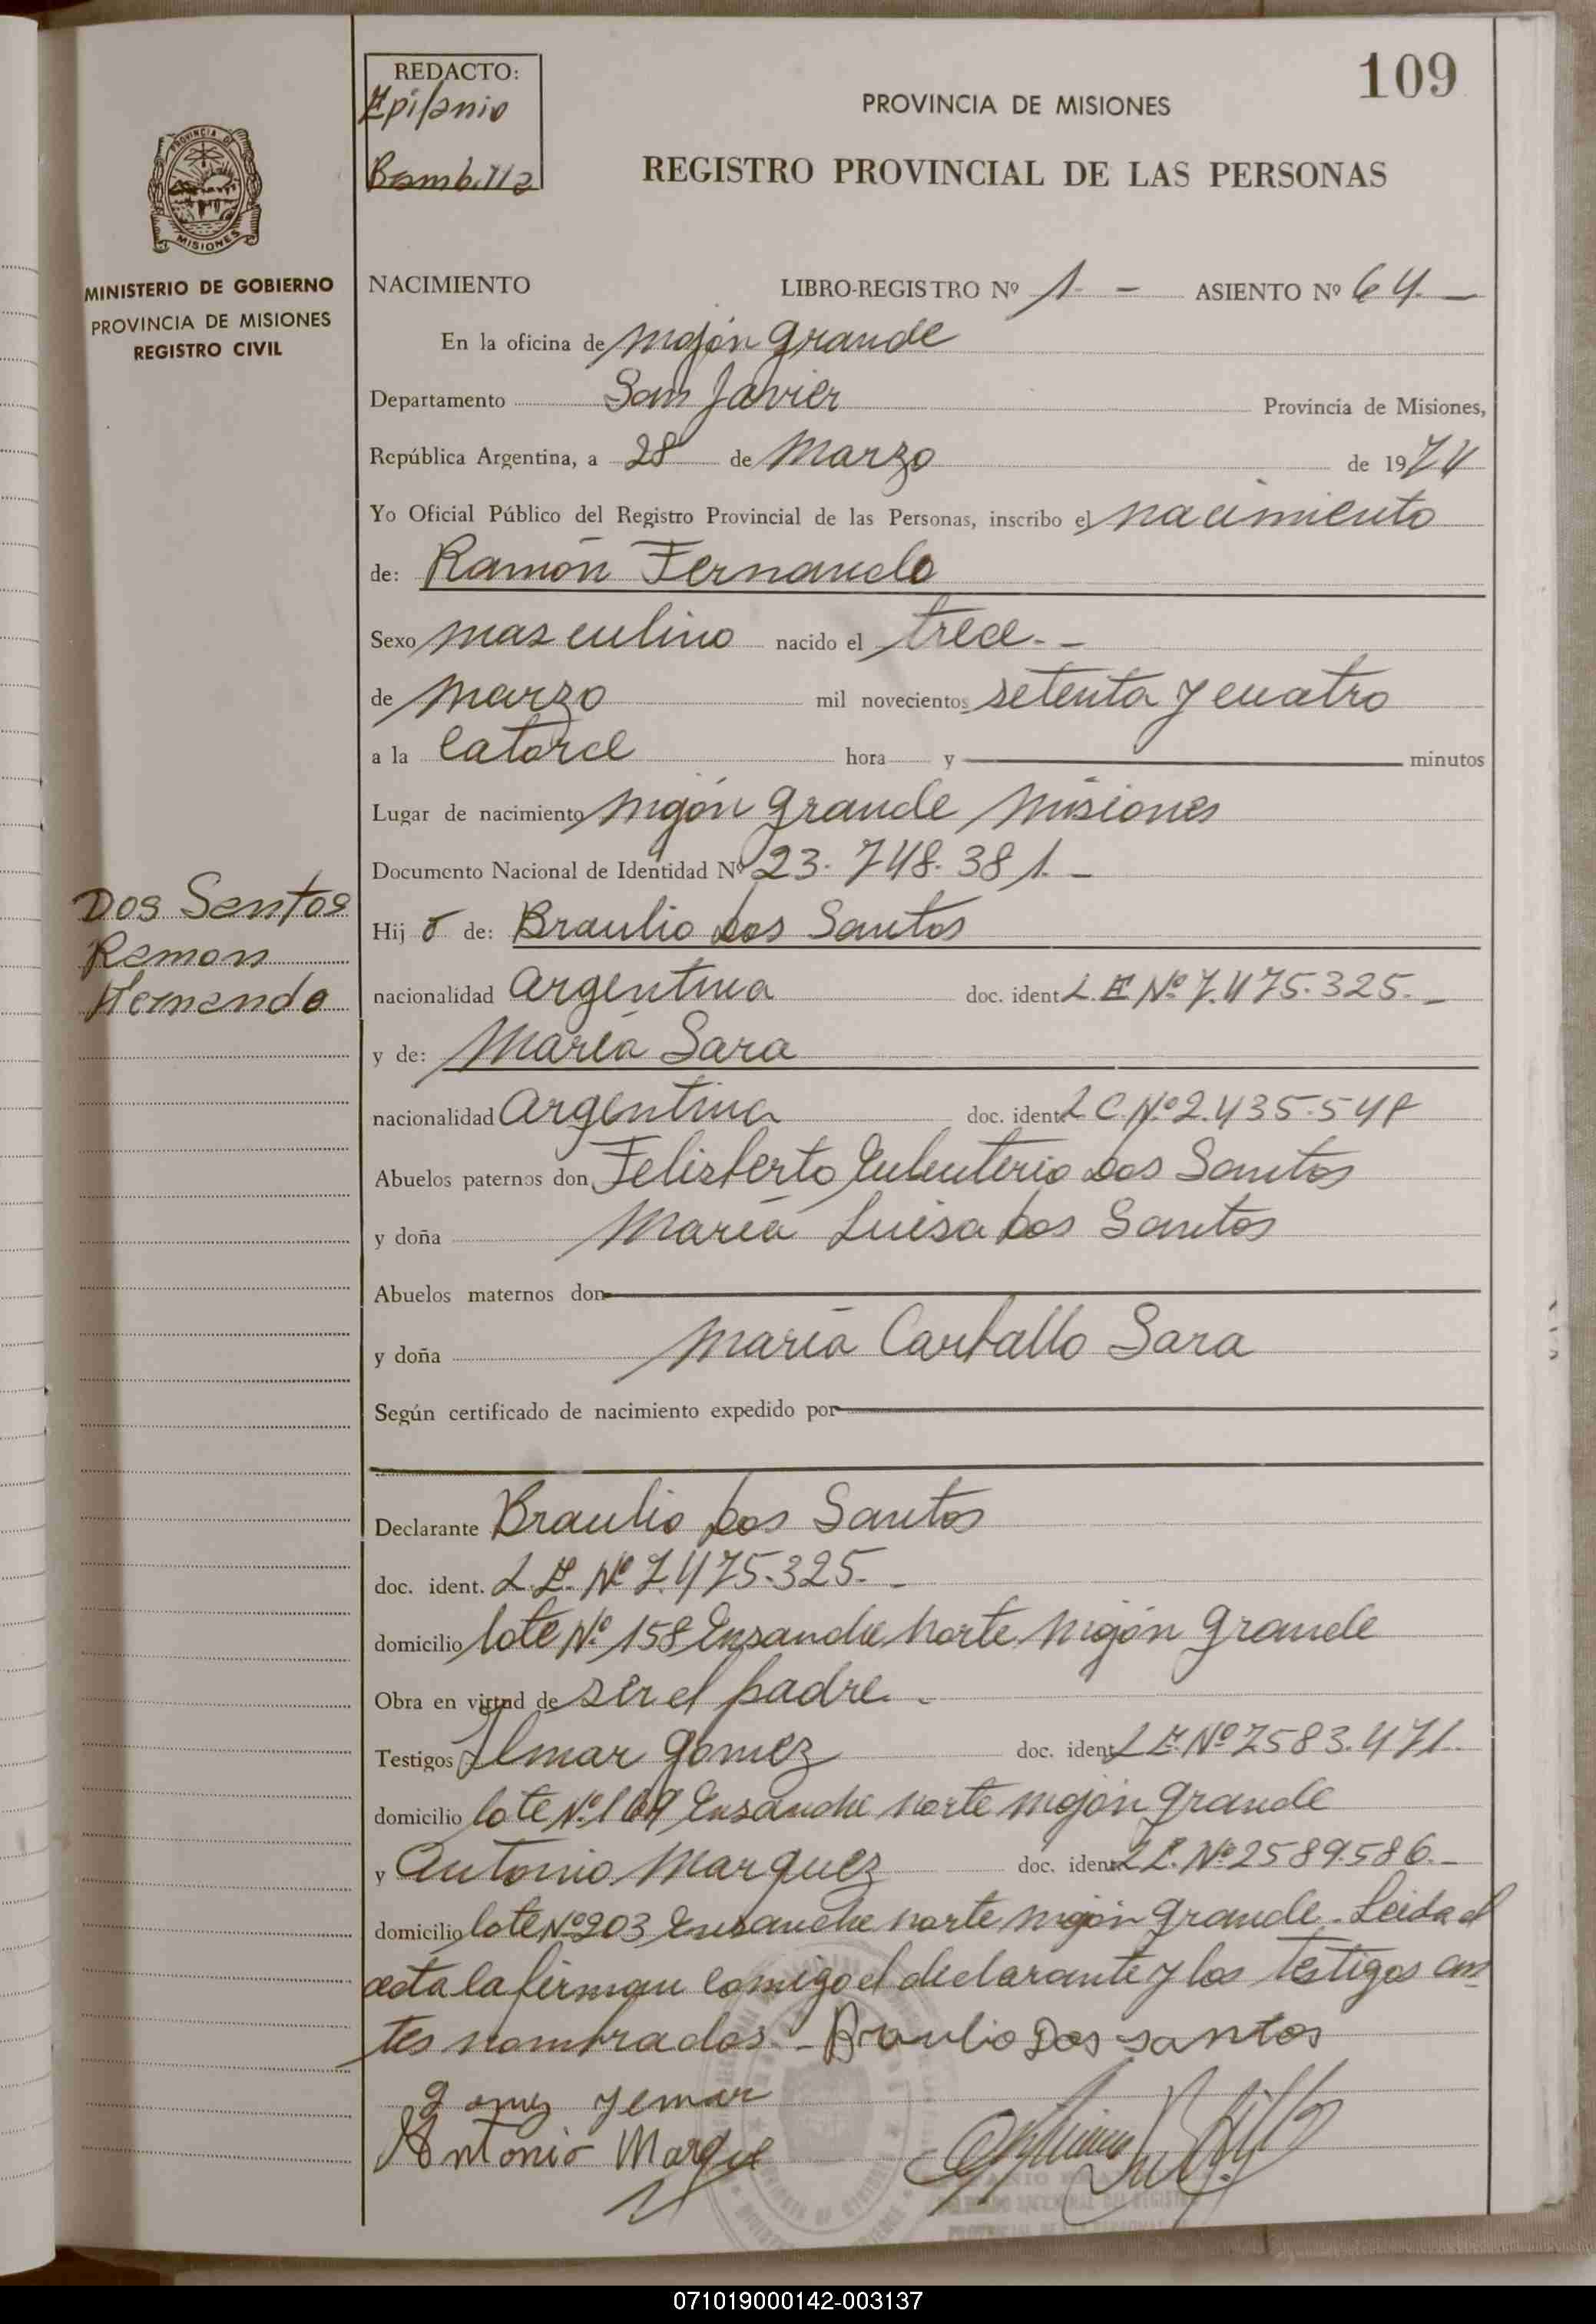 109
REDACTO:
Epifanio
Bombilla
PROVINCIA DE MISIONES
REGISTRO PROVINCIAL DE LAS PERSONAS
PROVINCIA DE
MISIONES
MINISTERIO DE GOBIERNO
PROVINCIA DE MISIONES
REGISTRO CIVIL
NACIMIENTO LIBRO-REGISTRO Nº 1 - ASIENTO Nº 64.-
En la oficina de Mojón Grande
Departamento San Javier Provincia de Misiones,
República Argentina, a 28 de Marzo de 1974
Yo Oficial Público del Registro Provincial de las Personas, inscribo el nacimiento
de: Ramón Fernando
Sexo masculino nacido el trece.-
de Marzo mil novecientos setenta y cuatro
a la catorce hora y minutos
Lugar de nacimiento Mojón Grande Misiones
Documento Nacional de Identidad Nº 23.748.381.-
Dos Santos
Ramon
Fernando
Hijo de: Braulio Dos Santos
nacionalidad Argentina doc. ident. L.E Nº 7.475.325.-
y de: María Sara
nacionalidad Argentina doc. ident. L C. Nº 2.435.
Abuelos paternos don Felisberto Euleuterio Dos Santos
y doña María Luisa Dos Santos
Abuelos maternos don
y doña María Carballo Sara
Según certificado de nacimiento expedido por
Declarante Braulio Dos Santos
doc. ident. L.E. Nº 7.475.325.-
domicilio lote Nº 158 Ensanche Norte Mojón Grande
Obra en virtud de ser el padre.-
Testigos Gomez doc. ident. L E. Nº 7583.471.
domicilio lote Nº 169 Ensanche Norte Mojón Grande
y Antonio Marquez doc. ident. L E. Nº 2589.586.-
domicilio lote Nº 203 Ensanche Norte Mojón Grande. Leida el
acta la firman comigo el declarante y los testigos an
tes nombrados.- Braulio Dos santos
gomez
Antonio Marque
071019000142-003137